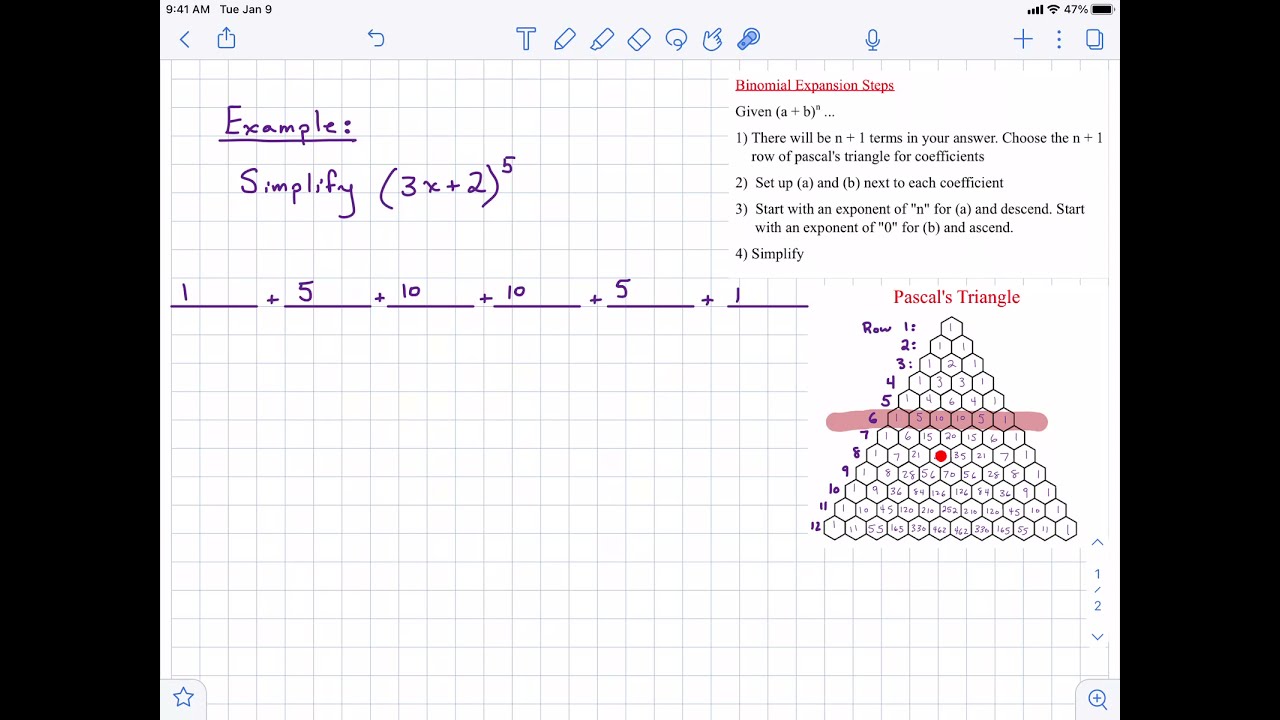 9:41 AM Tue Jan 9
47%
T
Example:
Simplify (3x+2)⁵
1 + 5 + 10 + 10 + 5 + 1
Binomial Expansion Steps
Given (a + b)ⁿ ...
1) There will be n + 1 terms in your answer. Choose the n + 1
row of pascal's triangle for coefficients
2) Set up (a) and (b) next to each coefficient
3) Start with an exponent of "n" for (a) and descend. Start
with an exponent of "0" for (b) and ascend.
4) Simplify
Pascal's Triangle
Row 1: 1
2: 1 1
3: 1 2 1
4 1 3 3 1
5 1 4 6 4 1
6 1 5 10 10 5 1
7 1 6 15 20 15 6 1
8 1 7 21 35 21 7 1
9 1 8 28 56 70 56 28 8 1
10 1 9 36 84 126 126 84 36 9 1
11 1 10 45 120 210 252 210 120 45 10 1
12 1 11 55 165 330 462 462 330 165 55 11 1
1
/
2